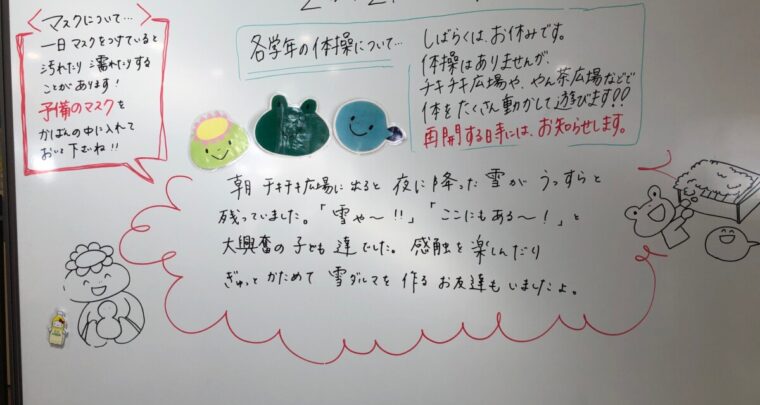 マスクについて…
一日マスクをつけていると
汚れたり濡れたりする
ことがあります!
予備のマスクを
かばんの中に入れて
おいて下さいね!!
各学年の体操について…
しばらくは、お休みです。
体操はありませんが、
チキチキ広場や、やん茶広場などで
体をたくさん動かして遊びます!!
再開する時には、お知らせします。
朝 チキチキ広場に出ると 夜に降った雪が うっすらと
残っていました。「雪や〜!!」「ここにもある〜!」と
大興奮の子ども達でした。感触を楽しんだり
ぎゅっとかためて 雪ダルマを作るお友達もいましたよ。